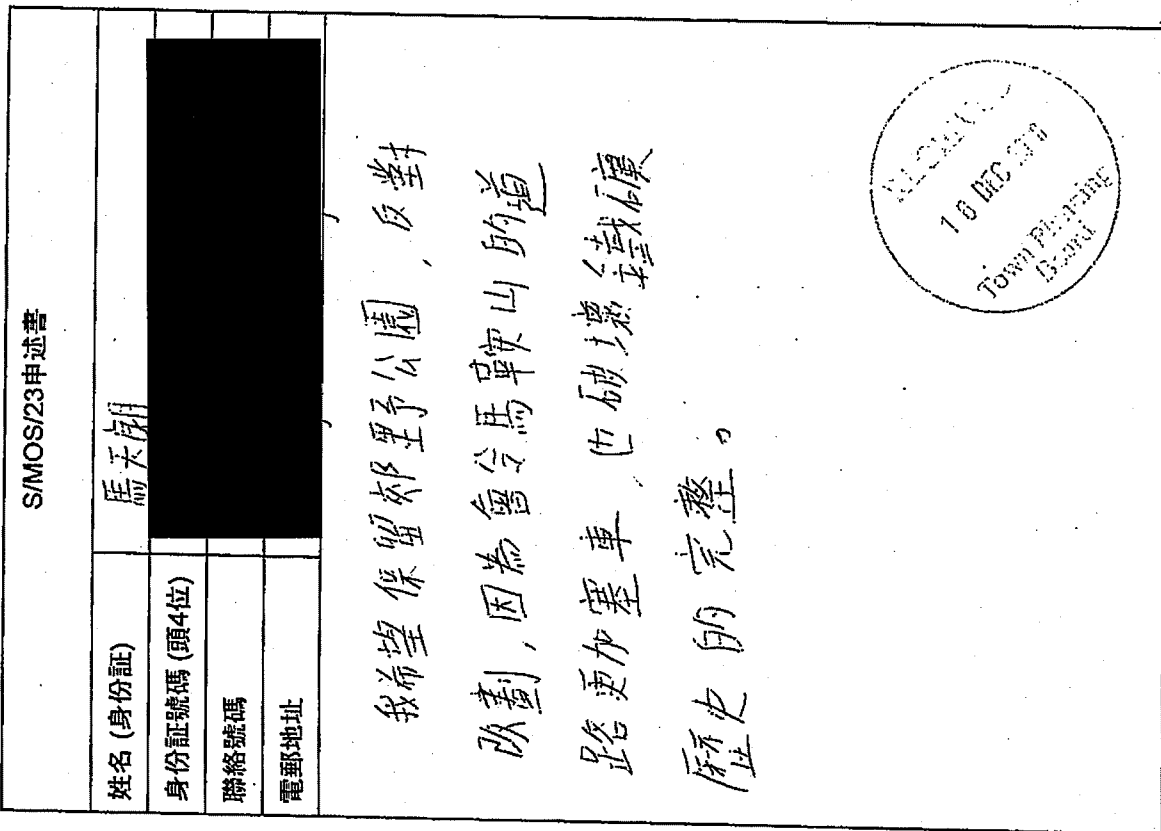 S/MOS/23申述書
姓名 (身份証) 馬天朗
身份証號碼 (頭4位)
聯絡號碼
電郵地址
我希望保留郊野公園，反對
改劃，因為會令馬鞍山的道
路更加塞車，也破壞鐵礦
歷史的完整。
RECEIVED
16 DEC 2020
Town Planning
Board